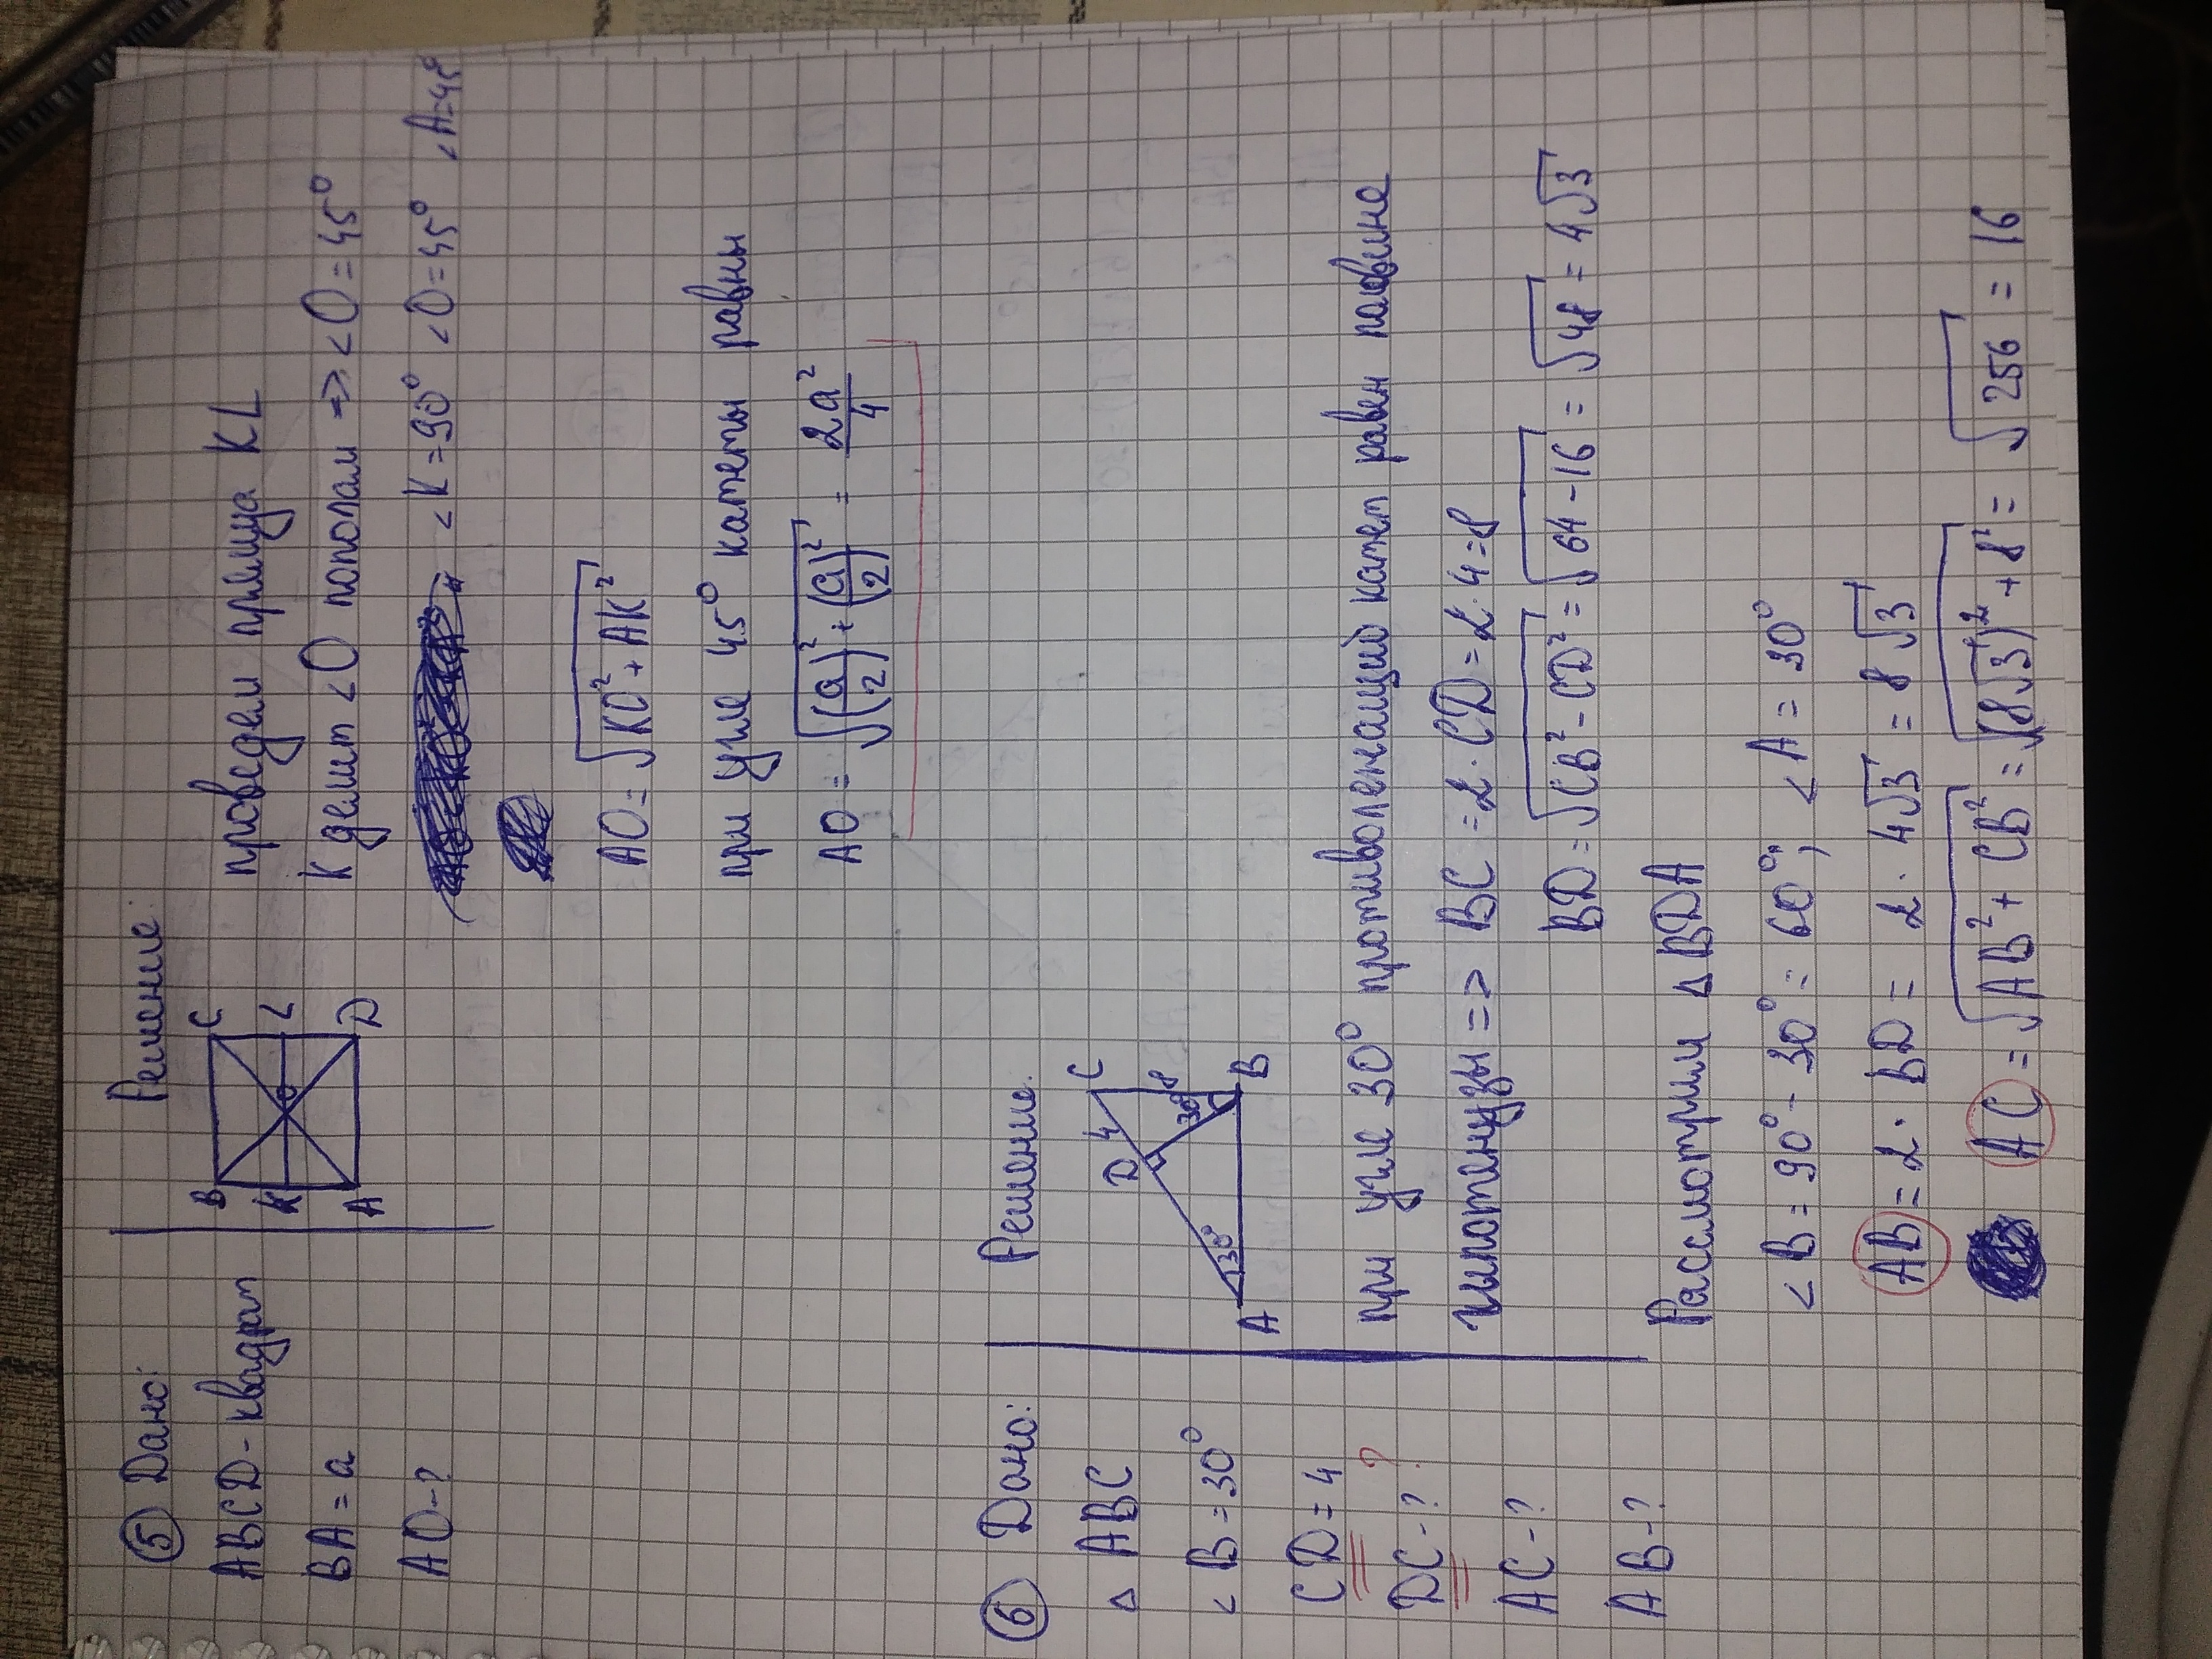 ⑤ Дано:
ABCD - квадрат
BA = a
AO - ?
Решение:
B C
K O L
A D
проведем прямую KL
K делит <O пополам => <O = 45°
< K = 90° <O = 45° <A = 45
AO = √KO² + AK²
при угле 45° катеты равны
AO = √(a/2)² + (a/2)² = 2a²/4
⑥ Дано:
△ ABC
< B = 30°
CD = 4
DC - ? ?
AC - ?
AB - ?
Решение:
D 4 C
30° 8
30°
A B
при угле 30° противолежащий катет равен половине
гипотенузы => BC = 2 · CD = 2 · 4 = 8
BD = √CB² - CD² = √64 - 16 = √48 = 4√3
Рассмотрим △ BDA
< B = 90° - 30° = 60°; < A = 30°
AB = 2 · BD = 2 · 4√3 = 8√3
AC = √AB² + CB² = √(8√3)² + 8² = √256 = 16